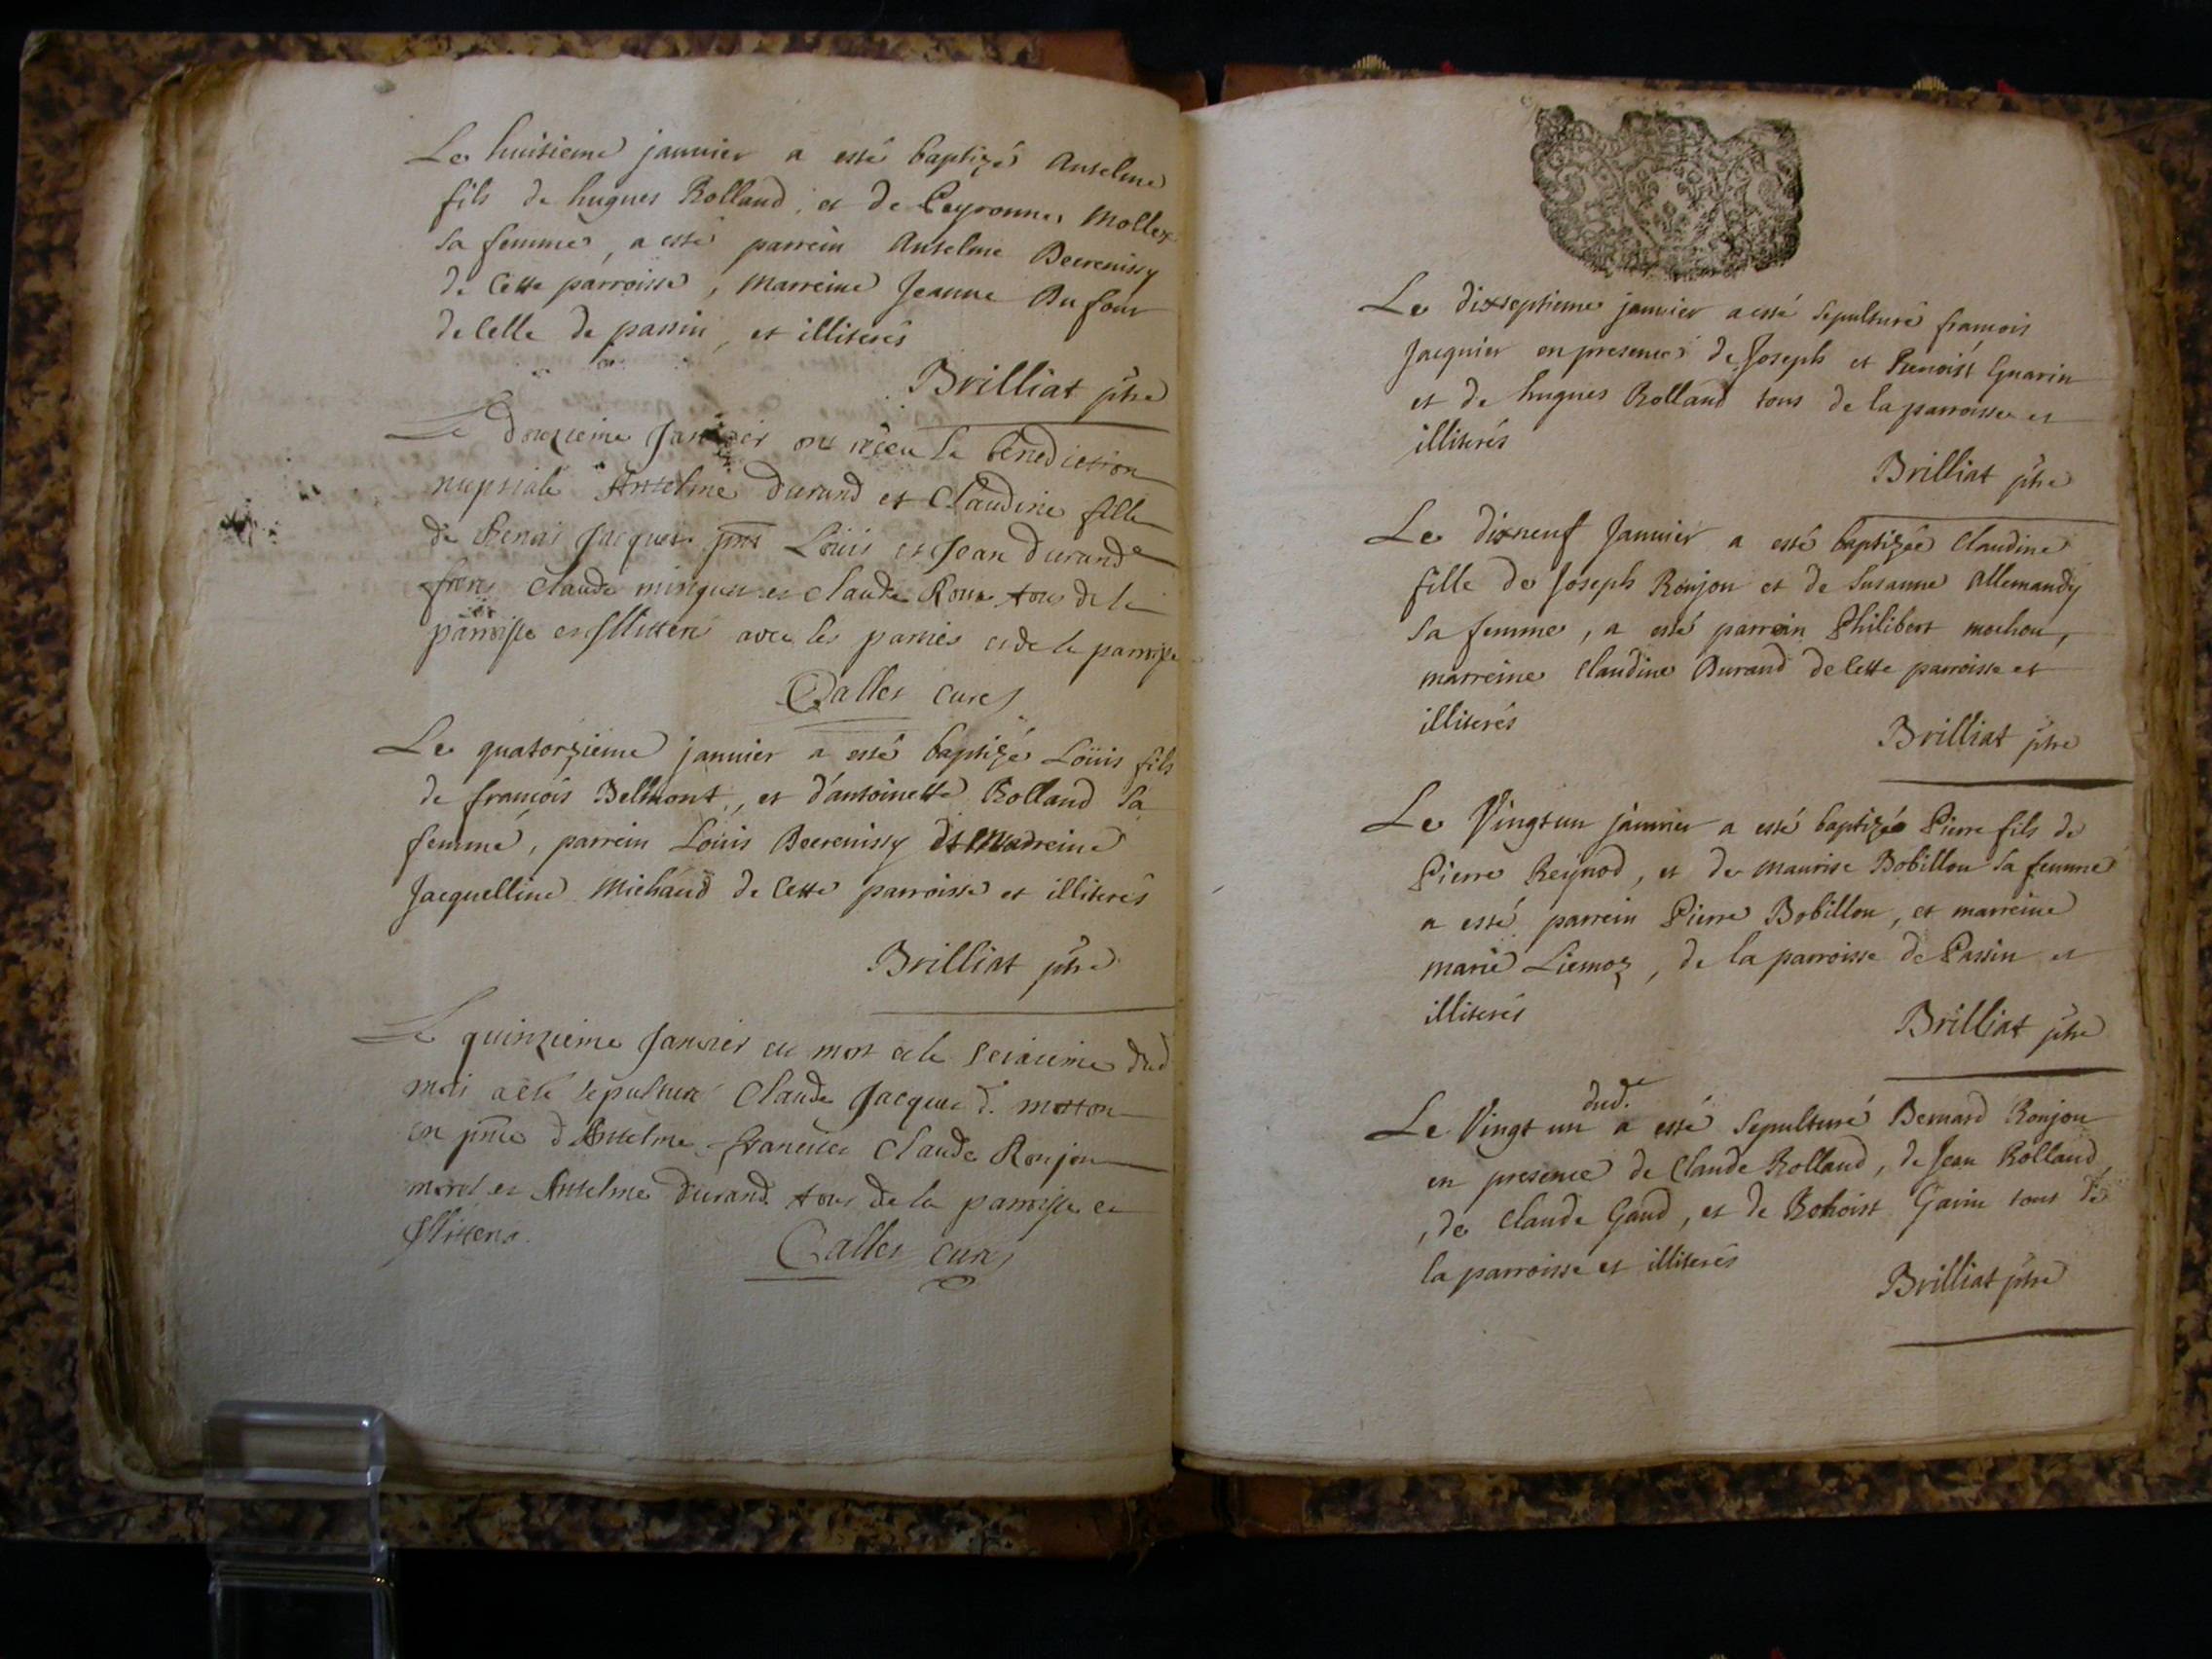 Le huitieme janvier a esté baptizé Anselme
fils de hugues Rolland, et de Peyronne Mollex
sa femme, a esté parrein Anselme Beerenissy
de cette parroisse, Marreine Jeanne Dufour
de celle de passin, et illiterés
Brilliat ptre
Le douzieme Janvier ont receu la benediction
nuptiale Anselme durand et Claudine fille
de Benoit Jacques pnts Loüis et Jean durand
freres Claude minguet et Claude Roux tous de la
parroisse et Illitteré avec les parties et de la parroisse
Calles curé
Le quatorzieme janvier a esté baptizé Loüis fils
de francois Belmont, et d'antoinette Rolland sa
femme, parrein Loüis Beerenissy et Madreine
Jacquelline Michaud de cette parroisse et illiterés
Brilliat ptre
Le quinzieme Janvier est mort et le seizieme dud
mois a eté sepulturé Claude Jacques d. motton
en pnce d'Anselme francillon Claude Ronjon
morel et Anselme durand tous de la parroisse et
Illitterés.
Calles curé
Le dixseptieme janvier a esté sepulturé francois
Jacquier en presence de Joseph et Benoist Guarin
et de hugues Rolland tous de la parroisse et
illiterés
Brilliat ptre
Le dixneuf Janvier a esté baptizée Claudine
fille de Joseph Ronjon et de Susanne Allemandy
sa femme, a esté parrein Philibert mochon,
marreine Claudine Durand de cette parroisse et
illiterés
Brilliat ptre
Le Vingt un janvier a esté baptizé Pierre fils de
Pierre Reynod, et de Maurise Bobillon sa femme
a esté parrein Pierre Bobillon, et marreine
marie Liemoz, de la parroisse de Passin et
illiterés
Brilliat ptre
Le Vingt un dud. a esté sepulturé Bernard Ronjon
en presence de Claude Rolland, de Jean Rolland
, de Claude Gaud, et de Benoist Garin tous de
la parroisse et illiterés
Brilliat ptre